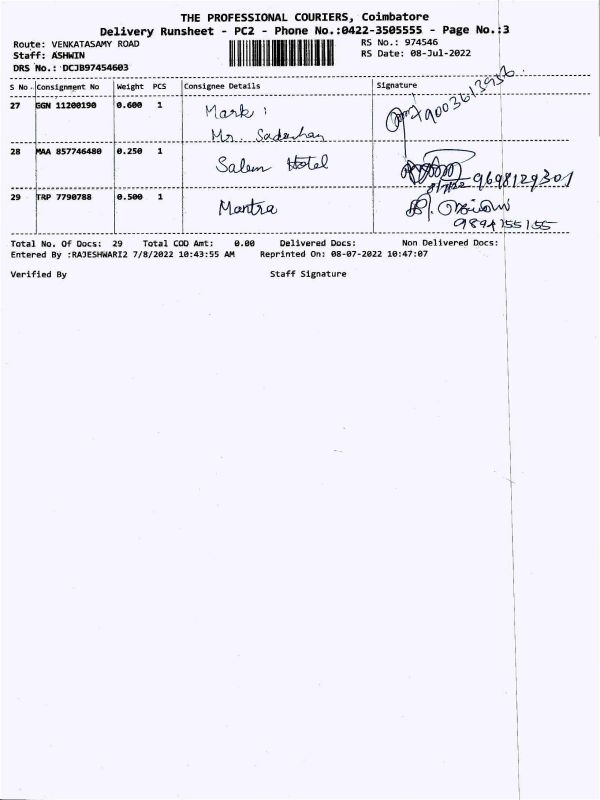 THE PROFESSIONAL COURIERS, Coimbatore
Delivery Runsheet - PC2 - Phone No.:0422-3505555 - Page No.:3
Route: VENKATASAMY ROAD RS No.: 974546
Staff: ASHWIN RS Date: 08-Jul-2022
DRS No.: DCJB97454603
S No. Consignment No Weight PCS Consignee Details Signature
27 GGN 11200190 0.600 1 Mark : 9003613956
Mr.
28 MAA 857746480 0.250 1 Salem Hotel 9698129301
29 TRP 7790788 0.500 1 Mantra
9894155155
Total No. Of Docs: 29 Total COD Amt: 0.00 Delivered Docs: Non Delivered Docs:
Entered By :RAJESHWARI2 7/8/2022 10:43:55 AM Reprinted On: 08-07-2022 10:47:07
Verified By Staff Signature